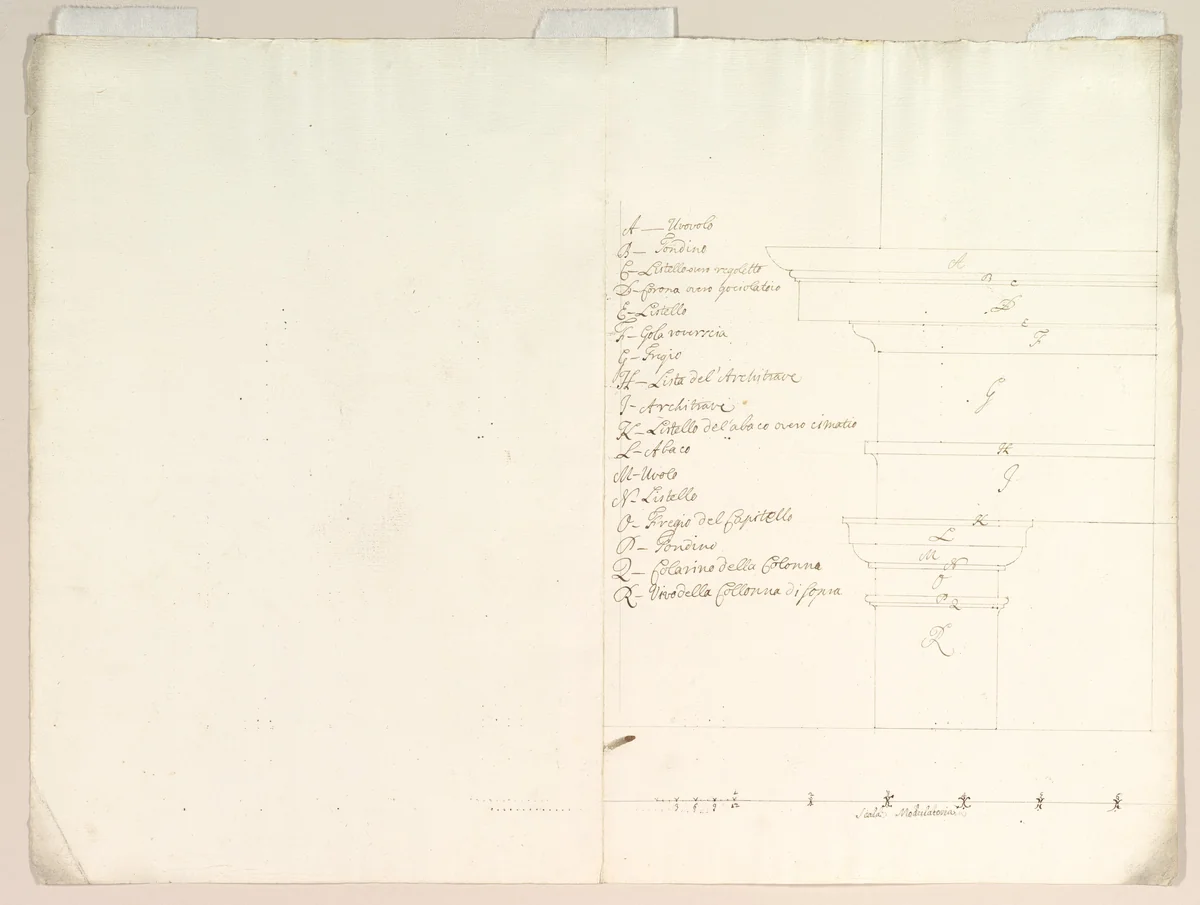 A — Uvovolo
B — Tondino
C — Listello overo regoletto
D — Corona overo gociolatoio
E — Listello
F — Gola roverscia
G — Frigio
H — Lista del' Architrave
I — Architrave
K — Listello del' abaco overo cimatio
L — Abaco
M — Uvolo
N — Listello
O — Fregio del Capitello
P — Tondino
Q — Colarino della Colonna
R — Vivo della Collonna di sopra
A
B C
D
E
F
G
H
I
K
L
M
N
O
P Q
R
Scala Modulatoria